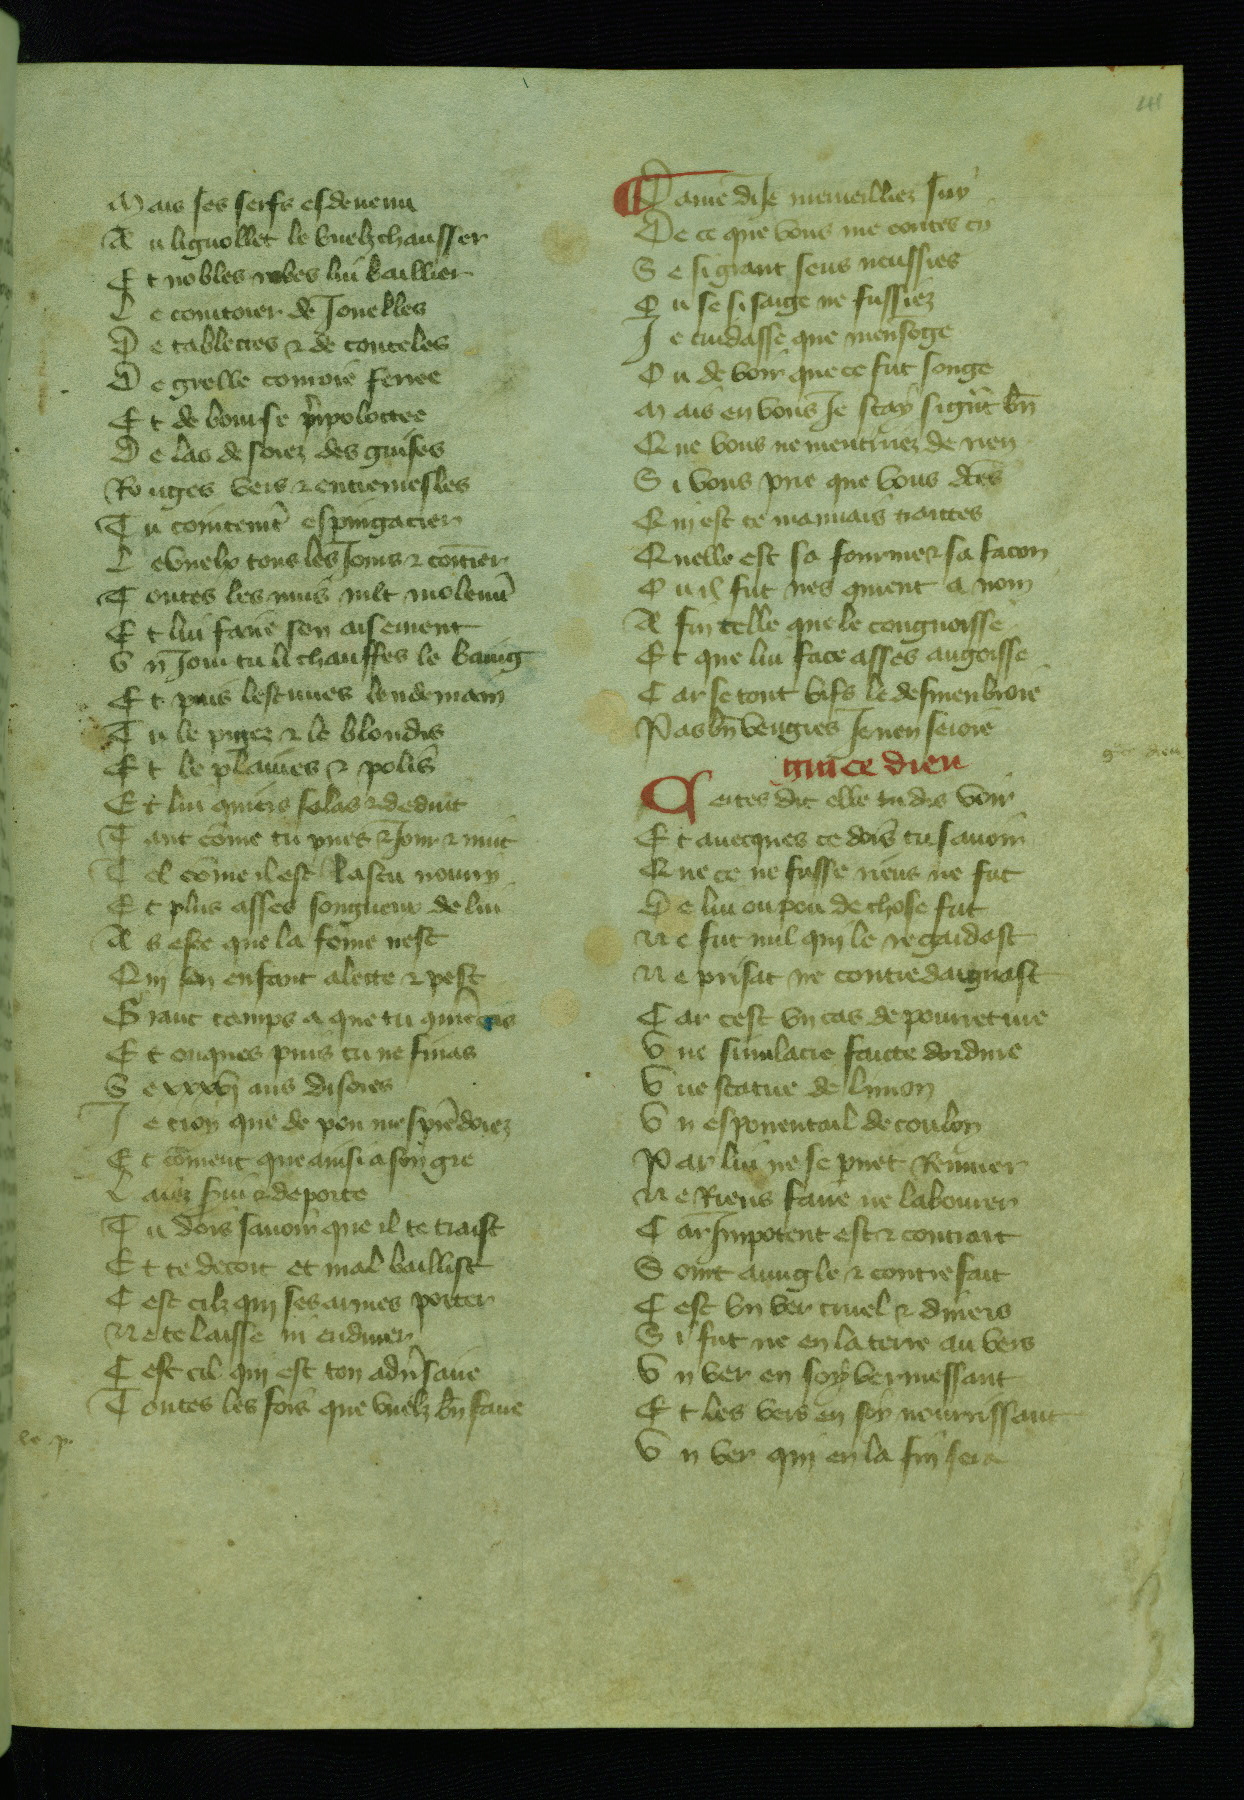 41
Mais ses serfs esdevenu
A u lignollet le vuelz chausser
E t nobles robes lui baillier
L e cointoier de Jouelles
D e tabletes & de couteles
D e grelle coiroie ferree
E t de bourse pipolottee
D e las de soiez des guises
Ro uges vers & entremesles
T u cointemt espingacier
L e vuelx tous les Jours & cointier
T outes les nuis mlt molemt
E t lui faire son aisement
U n Jour tu li chauffes le baing
E t puis lestuves lendemain
T u le pigez & le blondis
E t le plaines & polis
E t lui quiers solas & deduit
T ant come tu pues & Jour & nuit
T el come il est las tu nourry
E t plus asses songneux de lui
A s este que la feme nest
Qui un enfant alecte & pest
G rant temps a que tu
E t onques puis tu ne finas
S e xxxvj ans disoies
J e croy que de pou mesprendroiez
E t coment que ainsi a son gre
L aiez servi & deporte
T u dois savoir que il te traist
E t te decoit et mal baillist
C est cilz qui ses armes porter
N e te laisse ni endurer
C est cil qui est ton adversaire
T outes les fois que vuelz bn faire
D ame dis Je merveilliez suy
D e ce que vous me contes cy
S e si grant sens neussies
E u se si saige ne fussiez
J e cuidasse que mensoge
O u de voir que ce fut songe
M ais en vous Je scay si
Q ue vous ne mentiriez de rien
S i vous prie que vous dies
Q ui est ce mauvais traittes
Q uelle est sa fourme & sa facon
O u il fut nes quient a nom
A fin telle que le congnoisse
E t que lui face asses angoisse
C ar se tout vifs le desmenbroie
P as bn vengies Je nen seroie
grace dieu
C ertes dit elle tu dis voir
E t avecques ce dois tu savoir
Q ue ce ne fusse riens ne fut
D e lui ou pou de chose fut
N e fut nul qui le regardast
N e prisat ne contredaignast
C ar cest un tas de pourreture
U ne simulacre faicte dordure
U ne statue de limon
U n esponentail de coulon
P ar lui ne se puet Remuer
N e Riens faire ne labourer
C ar Impotent est & contrait
S oint avugle & contrefait
C est un ver cruel & divers
S i fut ne en la terre au vers
U n ver en soy vermessant
E t les vers en soy nourrissant
U n ver qui en la fin sera